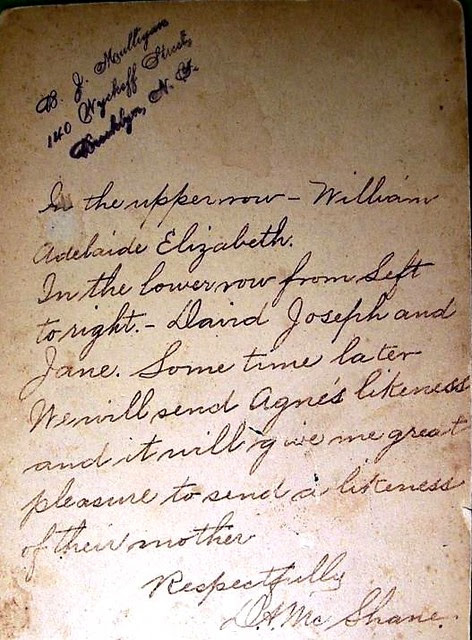 B. J. Mulligan
140 Wyckoff Street,
Brooklyn, N. Y.
In the upper row – William
Adelaide Elizabeth.
In the lower row from Left
to right. – David Joseph and
Jane. Some time later
We will send Agnes likeness
and it will give me great
pleasure to send a likeness
of their mother
Respectfully
D A Mc Shane.